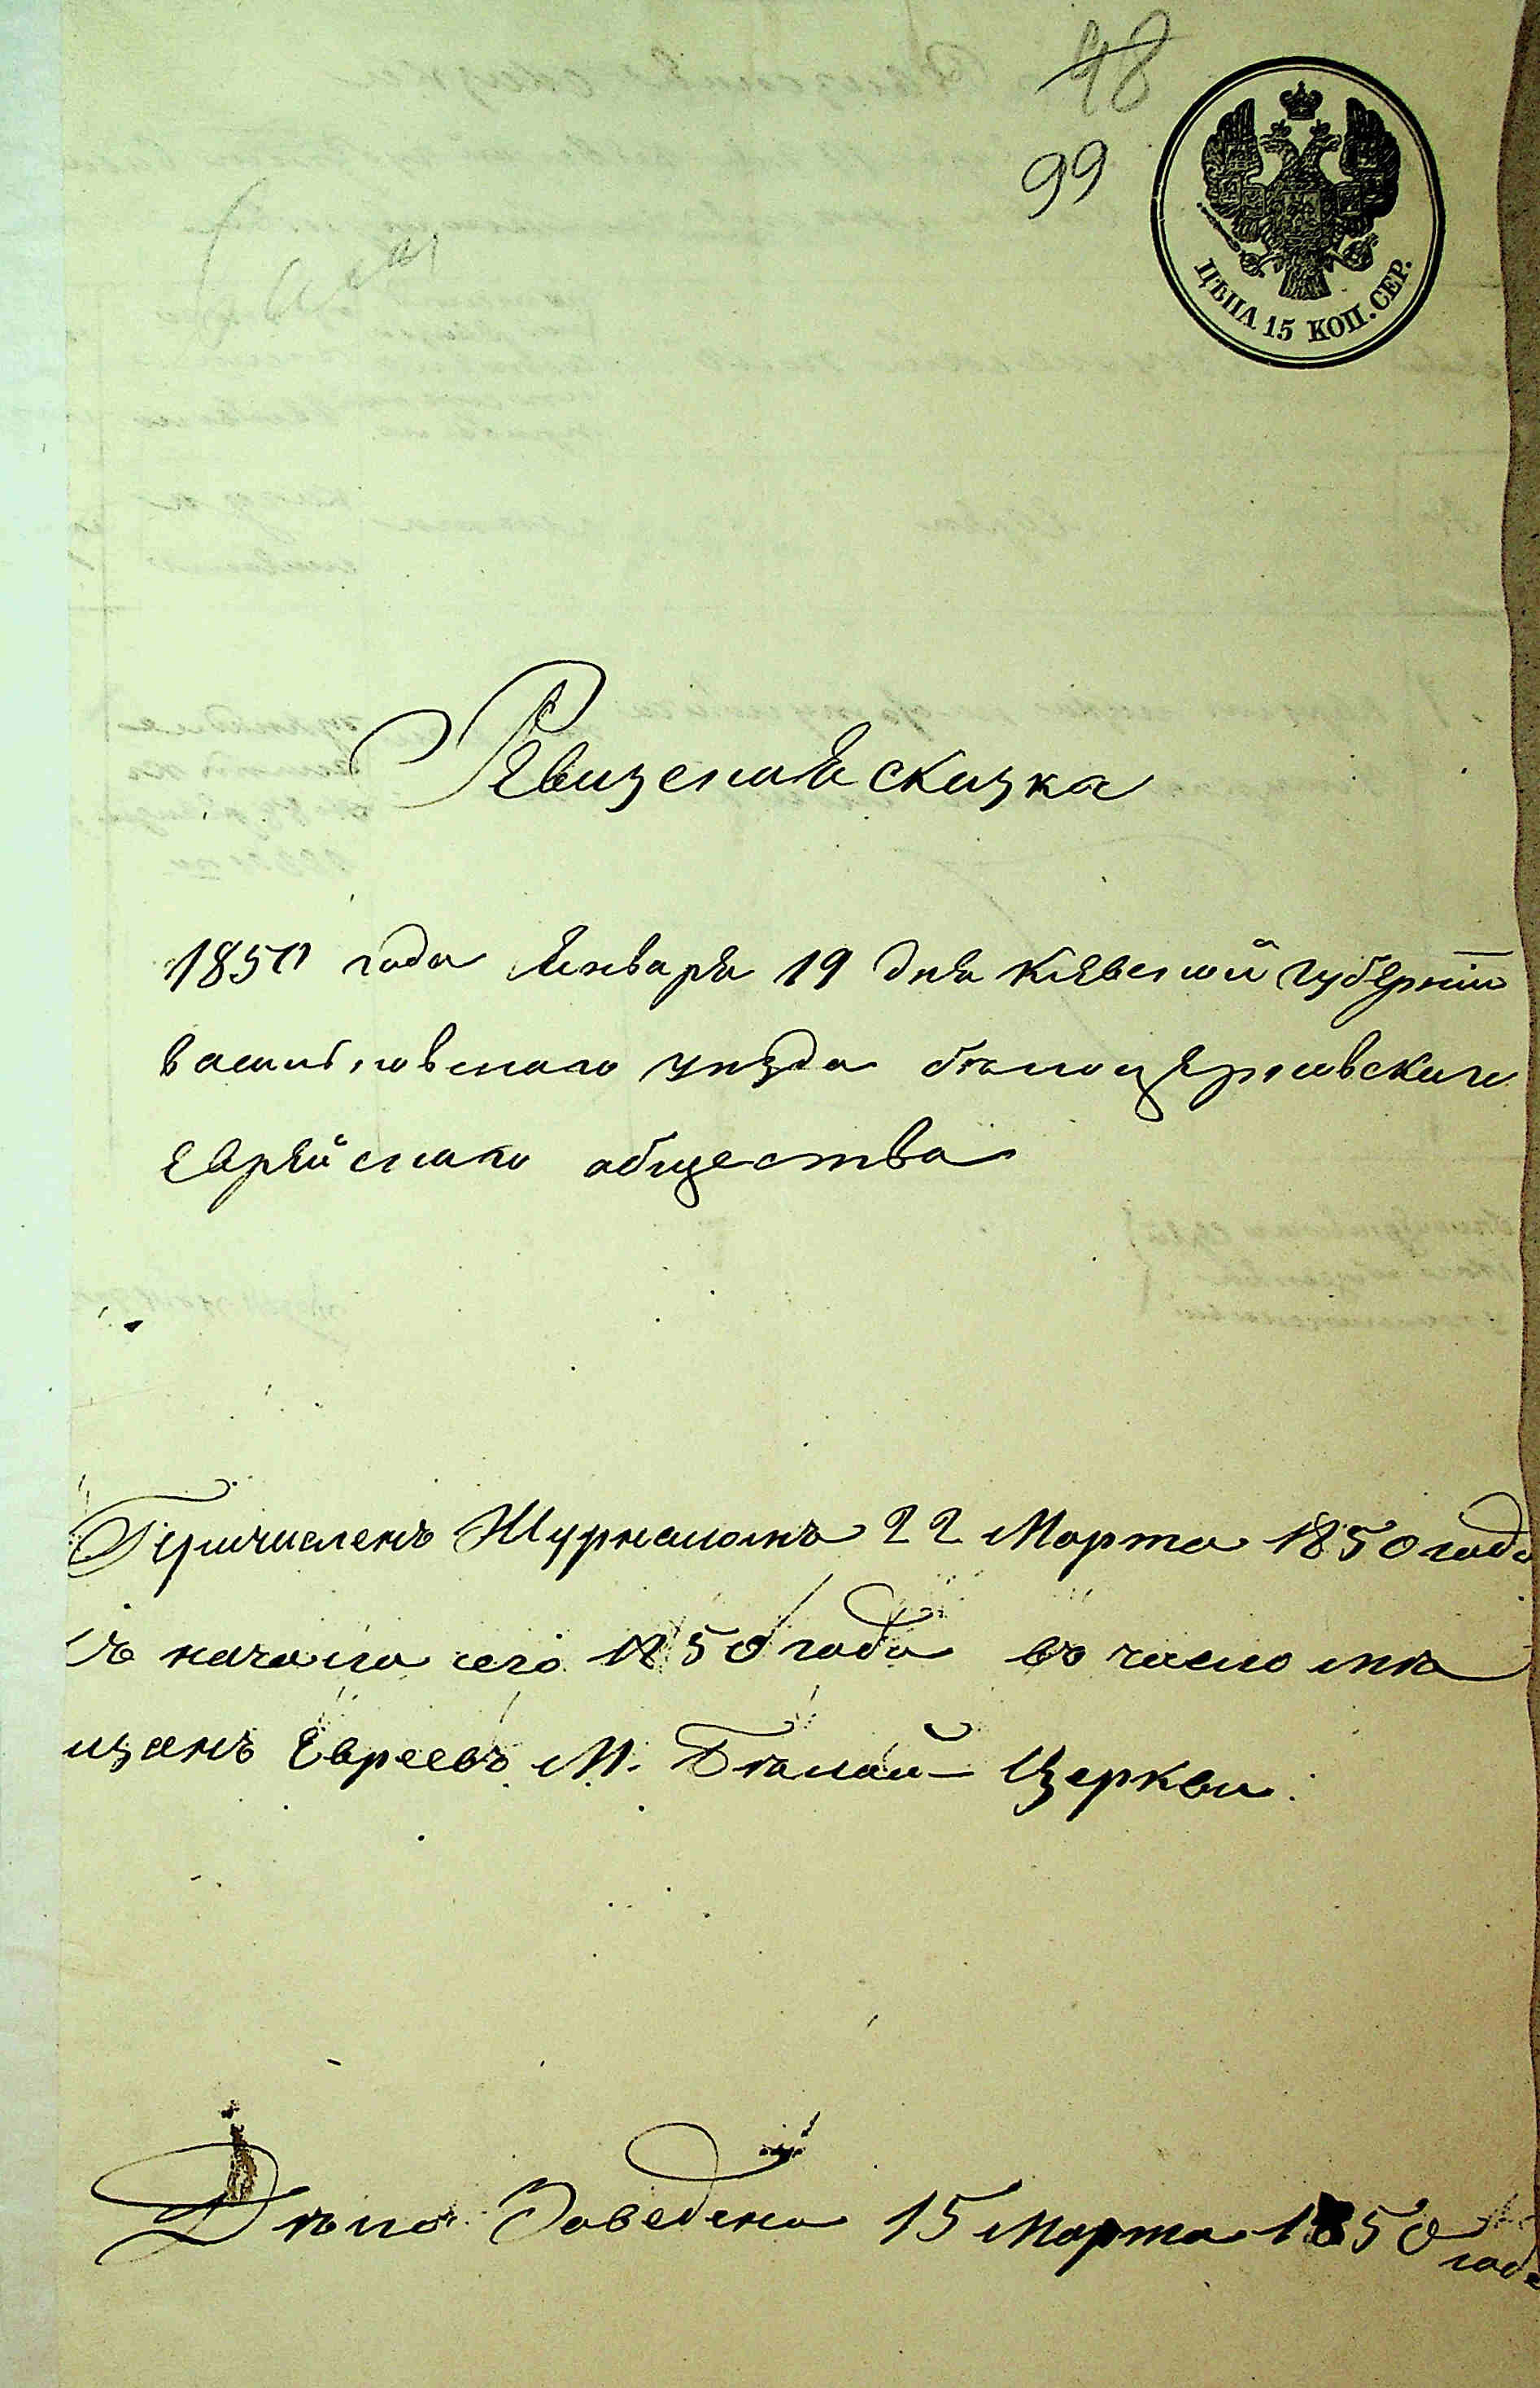 48
99
ЦѢНА 15 КОП. СЕР.
Ревизская сказка
1850 года Января 19 дня Киевской губерніи
васильковскаго уѣзда бѣлоцерковскаго
Еврейскаго общества
Причисленъ Журналомъ 22 Марта 1850 года
съ начала сего 1850 года въ число мѣ
щанъ Евреевъ М. Бѣлой-Церкви.
Дѣло Заведено 15 Марта 1850
года